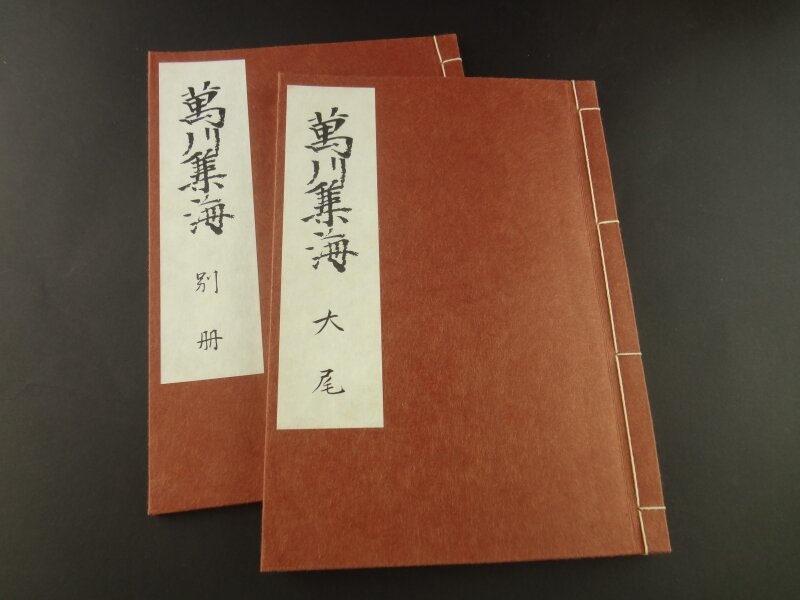 萬川集海 別冊
萬川集海 大尾